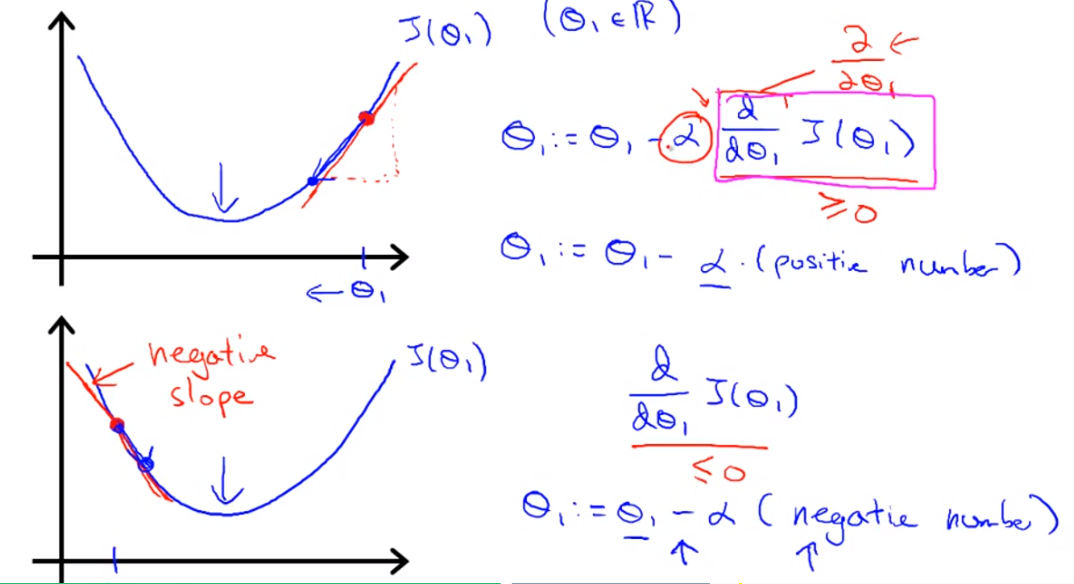 J(θ₁) (θ₁ ∈ ℝ)
∂/∂θ₁ ←
θ₁ := θ₁ - α d/dθ₁ J(θ₁)
≥ 0
θ₁ := θ₁ - α · (positive number)
← θ₁
negative
slope
J(θ₁)
d/dθ₁ J(θ₁)
≤ 0
θ₁ := θ₁ - α (negative number)